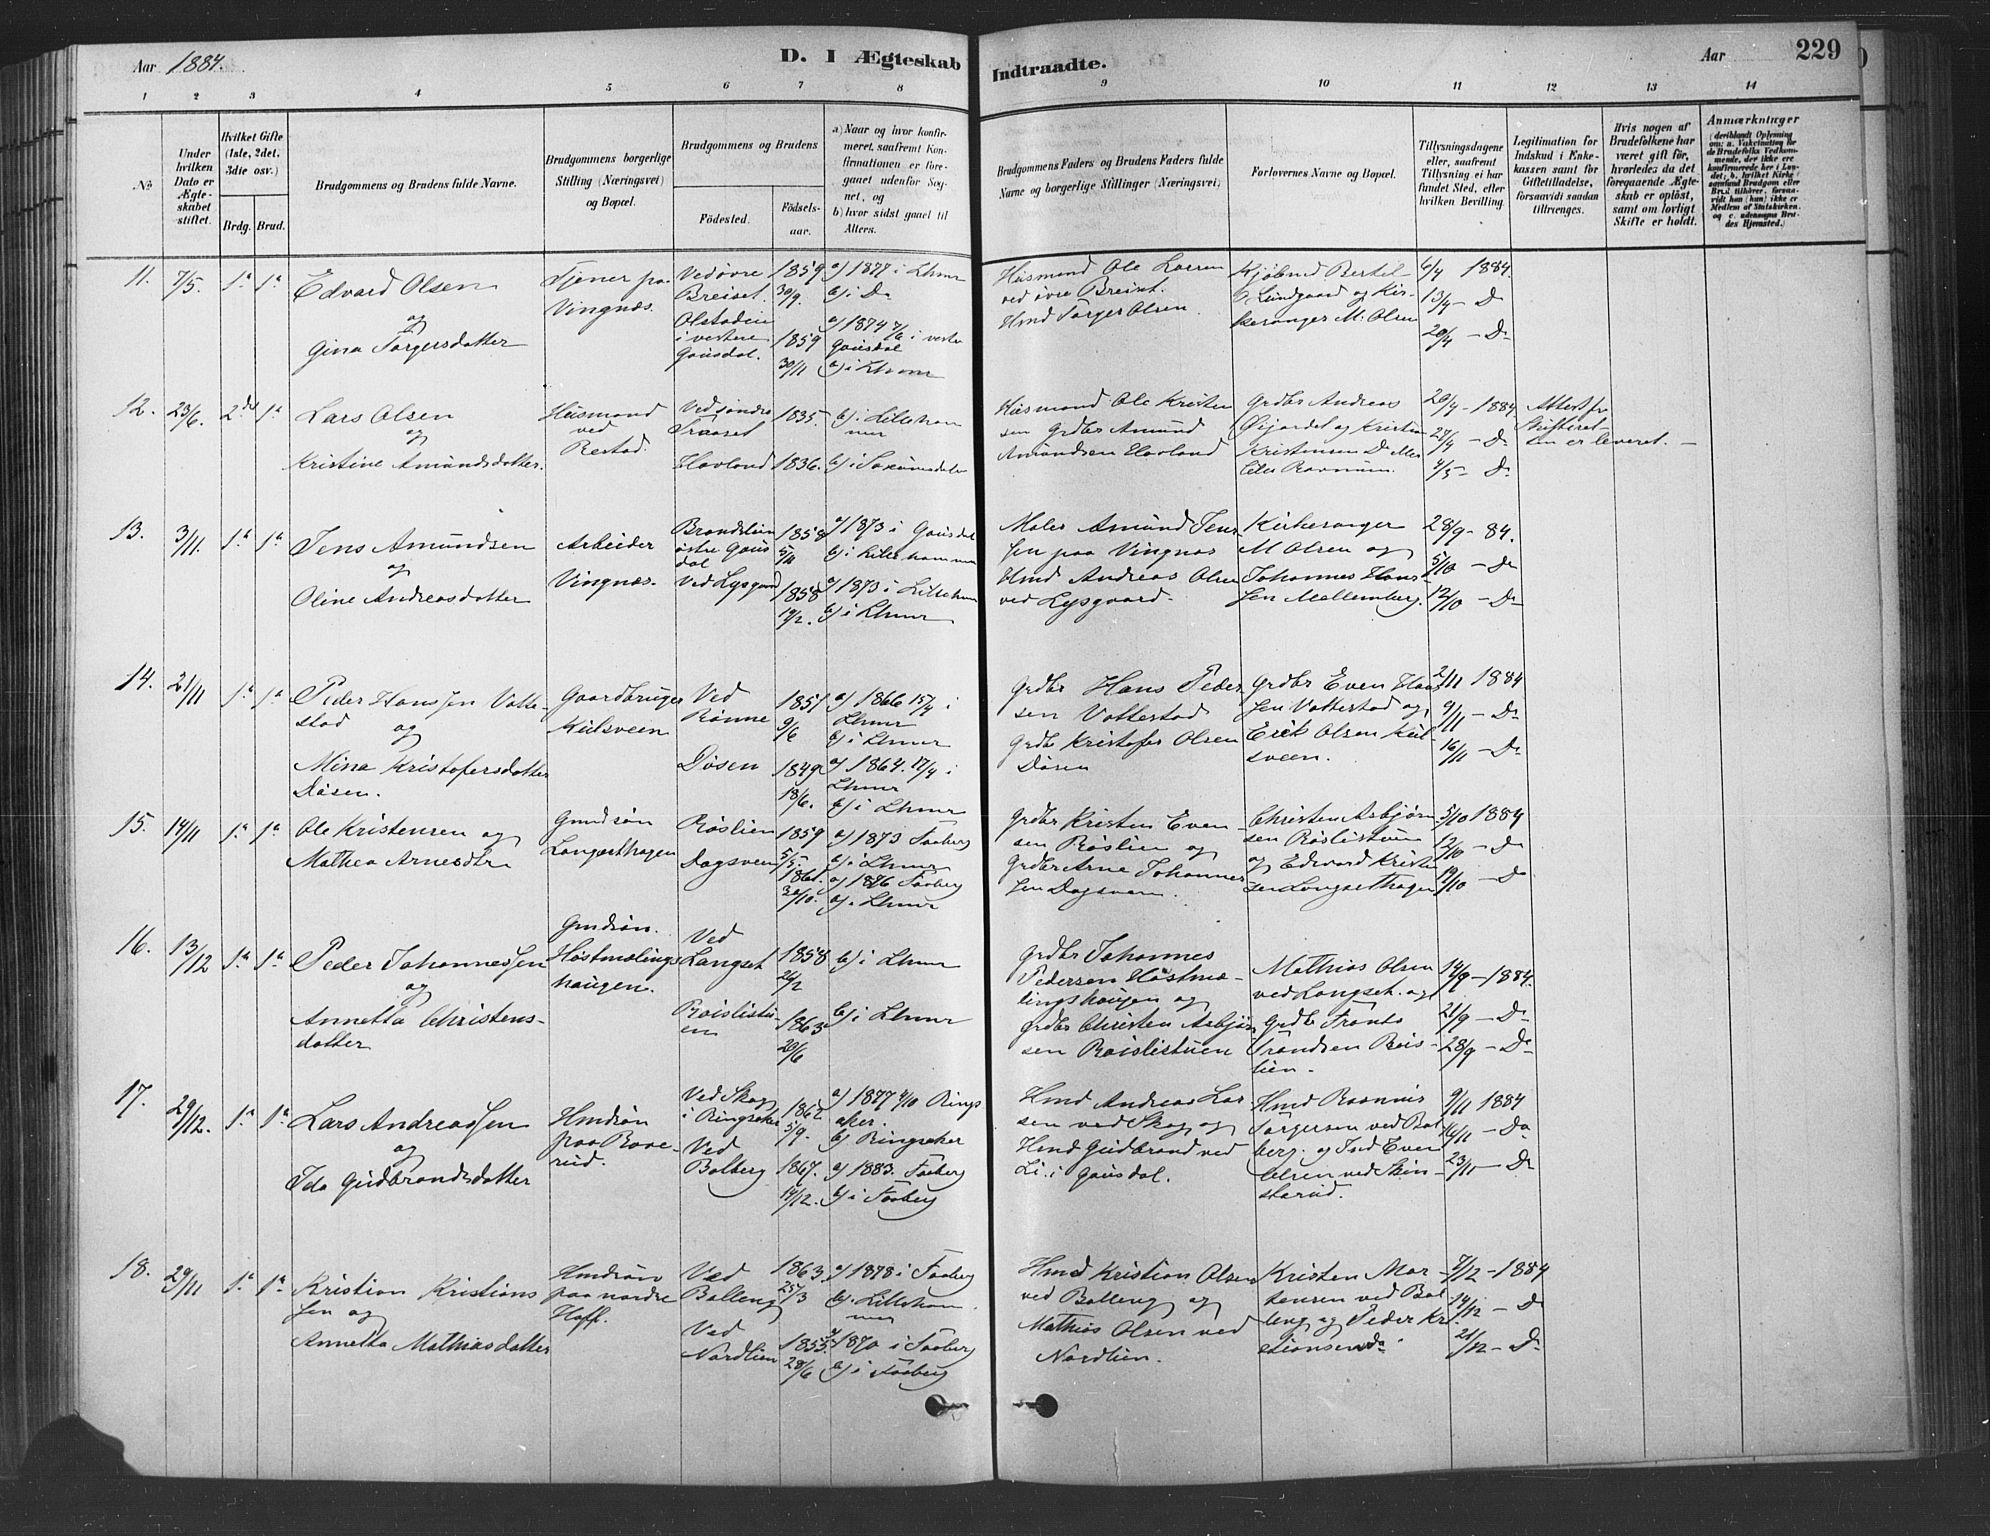 Aar 1884.
D. I Ægteskab Indtraadte.
Aar 229
1 2 3 4 5 6 7 8 9 10 11 12 13 14
No
Under hvilken Dato er Ægteskabet stiftet.
Hvilket Gifte (1ste, 2det, 3die osv.)
Brdg. Brud.
Brudgommens og Brudens fulde Navne.
Brudgommens borgerlige Stilling (Næringsvei) og Bopæl.
Brudgommens og Brudens
Fødested.
Fødselsaar.
a) Naar og hvor konfirmeret, saafremt Konfirmationen er foregaaet udenfor Sognet, og
b) hvor sidst gaaet til Alters.
Brudgommens Faders og Brudens Faders fulde Navne og borgerlige Stillinger (Næringsvei)
Forlovernes Navne og Bopæl.
Tillysningsdagene eller, saafremt Tillysning ei har fundet Sted, efter hvilken Bevilling.
Legitimation for Indskud i Enkekassen samt for Giftetilladelse, forsaavidt saadan tiltrænges.
Hvis nogen af Brudefolkene har været gift før, hvorledes da det foregaaende Ægteskab er opløst, samt om lovligt Skifte er holdt.
Anmærkninger
11. 7/5. 1ª 1ª
Edvard Olsen
og
Gina Torgersdatter
Tjener paa
Vingnæs.
Ved øvre
Breiset.
Olstadeie
i vestere
Gausdal.
1859
30/9.
1859
30/11
a) 1877 i Lhmr
b) i Do
a) 1874 i vestre
Gausdal
b) i Lhmr
Husmand Ole Larsen
ved øvre Breiset.
Hmd Torger Olsen.
Kjøbmd Bertel
E. Lundgaard og Kirkesanger M. Olsen
6/4 1884.
13/4 – Do
20/4 – Do
12. 23/6. 2det 1ª
Lars Olsen
og
Kristine Amundsdatter.
Husmand
ved
Restad.
Ved søndre
Traaset
Hovland
1835.
1836.
b) i Lillehammer
b) i Saxumsdalen
Husmand Ole Kristensen Grdbr Amund
Amundsen Hovland
Grdbr Andreas
Øijordet og Kristian
Kristensen Do
20/4 – 1884
27/4 – Do
4/5 – Do
Attest fr
Skifteretten er leveret. –
13. 3/11. 1ª 1ª
Jens Amundsen
og
Oline Andreasdatter
Arbeider
Vingnæs.
Brandslien
østre Gausdal
Ved Lysgaard
1858
5/4
1858
19/2.
a) 1873 i Gausdal
b) i Lillehammer
a) 1873 i Lilleham
b) i Lhmr
Maler Amund Jensen paa Vingnæs
Hmd Andreas Olsen
ved Lysgaard.
Kirkesanger
M Olsen og
Johannes Hansen Mollemberg.
28/9 – 84.
5/10 – Do
12/10 – Do
14. 21/11 1ª 1ª
Peder Hanssen Vattestad
og
Mina Kristofersdatter
Døsen.
Gaardbruger
Kulsveen
Ved
Rønne
Døsen
1851
9/6
1849
18/6.
a) 1866 15/4 i
Lhmr
b) i Lhmr
a) 1864. 17/4 i
Lhmr
b) i Lhmr
Grdbr Hans Pedersen Vattestad
Grdbr Kristofer Olsen
Døsen
Grdbr Even Hanssen Vattestad og
Erik Olsen Kulsveen.
2/11 1884
9/11 – Do
16/11 – Do
15. 14/11 1ª 1ª
Ole Kristensen og
Mathea Arnesdtr
Gmdsøn
Langsethagen
Røslien
Dagsveen
1859
5/5.
1861.
30/10.
a) 1873 Faaberg
b) i Lhmr
a) 1876 Faaberg
b) i Lhmr
Grdbr Kristen Evensen Røslien og
Grdbr Arne Johannessen Dagsveen.
Christen Asbjørnsen Røslistuen
og Edevard Kristensen Langsethagen
5/10 1884
12/10 – Do
19/10 – Do
16. 13/12 1ª 1ª
Peder Johannessen
og
Annetta Christensdatter
Gmdsøn.
Høstmælingshaugen.
Ved
Langset
Roislistuen
1858
26/2
1863
20/6
b) i Lhmr
b) i Lhmr
Grdbr Johannes
Pedersen Høstmælingshaugen og
Grdbr Christen Asbjørnsen Roislistuen
Mathias Olsen
ved Langset. og
Grdbr Tronds
Trondsen Roislien.
14/9 – 1884.
21/9 – Do
28/9 – Do
17. 29/12. 1ª 1ª
Lars Andreassen
og
Ida Gudbrandsdatter
Hmdsøn
paa Roverud.
Ved Skog
i Ringsaker
Ved
Balberg
1862
5/9.
1867.
14/12.
a) 1877 4/10 Ringsaker.
b) Ringsaker
a) 1883. Faaberg
b) i Faaberg
Hmd Andreas Larsen ved Skog og
Hmd Gudbrand ved
Li. i Gausdal.
Hmd Rasmus
Torgersen ved Balberg. og Ind Even
Olsen ved Skinstarud.
9/11 1884
16/11 – Do
23/11 – Do
18. 29/11 1ª 1ª
Kristian Kristianssen og
Annetta Mathiasdatter
Hmdsøn
paa nordre
Hoff.
Ved
Balleng
Ved
Nordlien
1863.
25/3
1853.
28/6
a) 1878 i Faaberg
b). Lillehammer
a) 1870 i Faaberg
b) i Faaberg
Hmd Kristian Olsen
ved Balleng og
Mathias Olsen ved
Nordlien.
Kristen Mortensen ved Balleng og Peder Kristiansen Do
7/12 – 1884
14/12 – Do
21/12 – Do